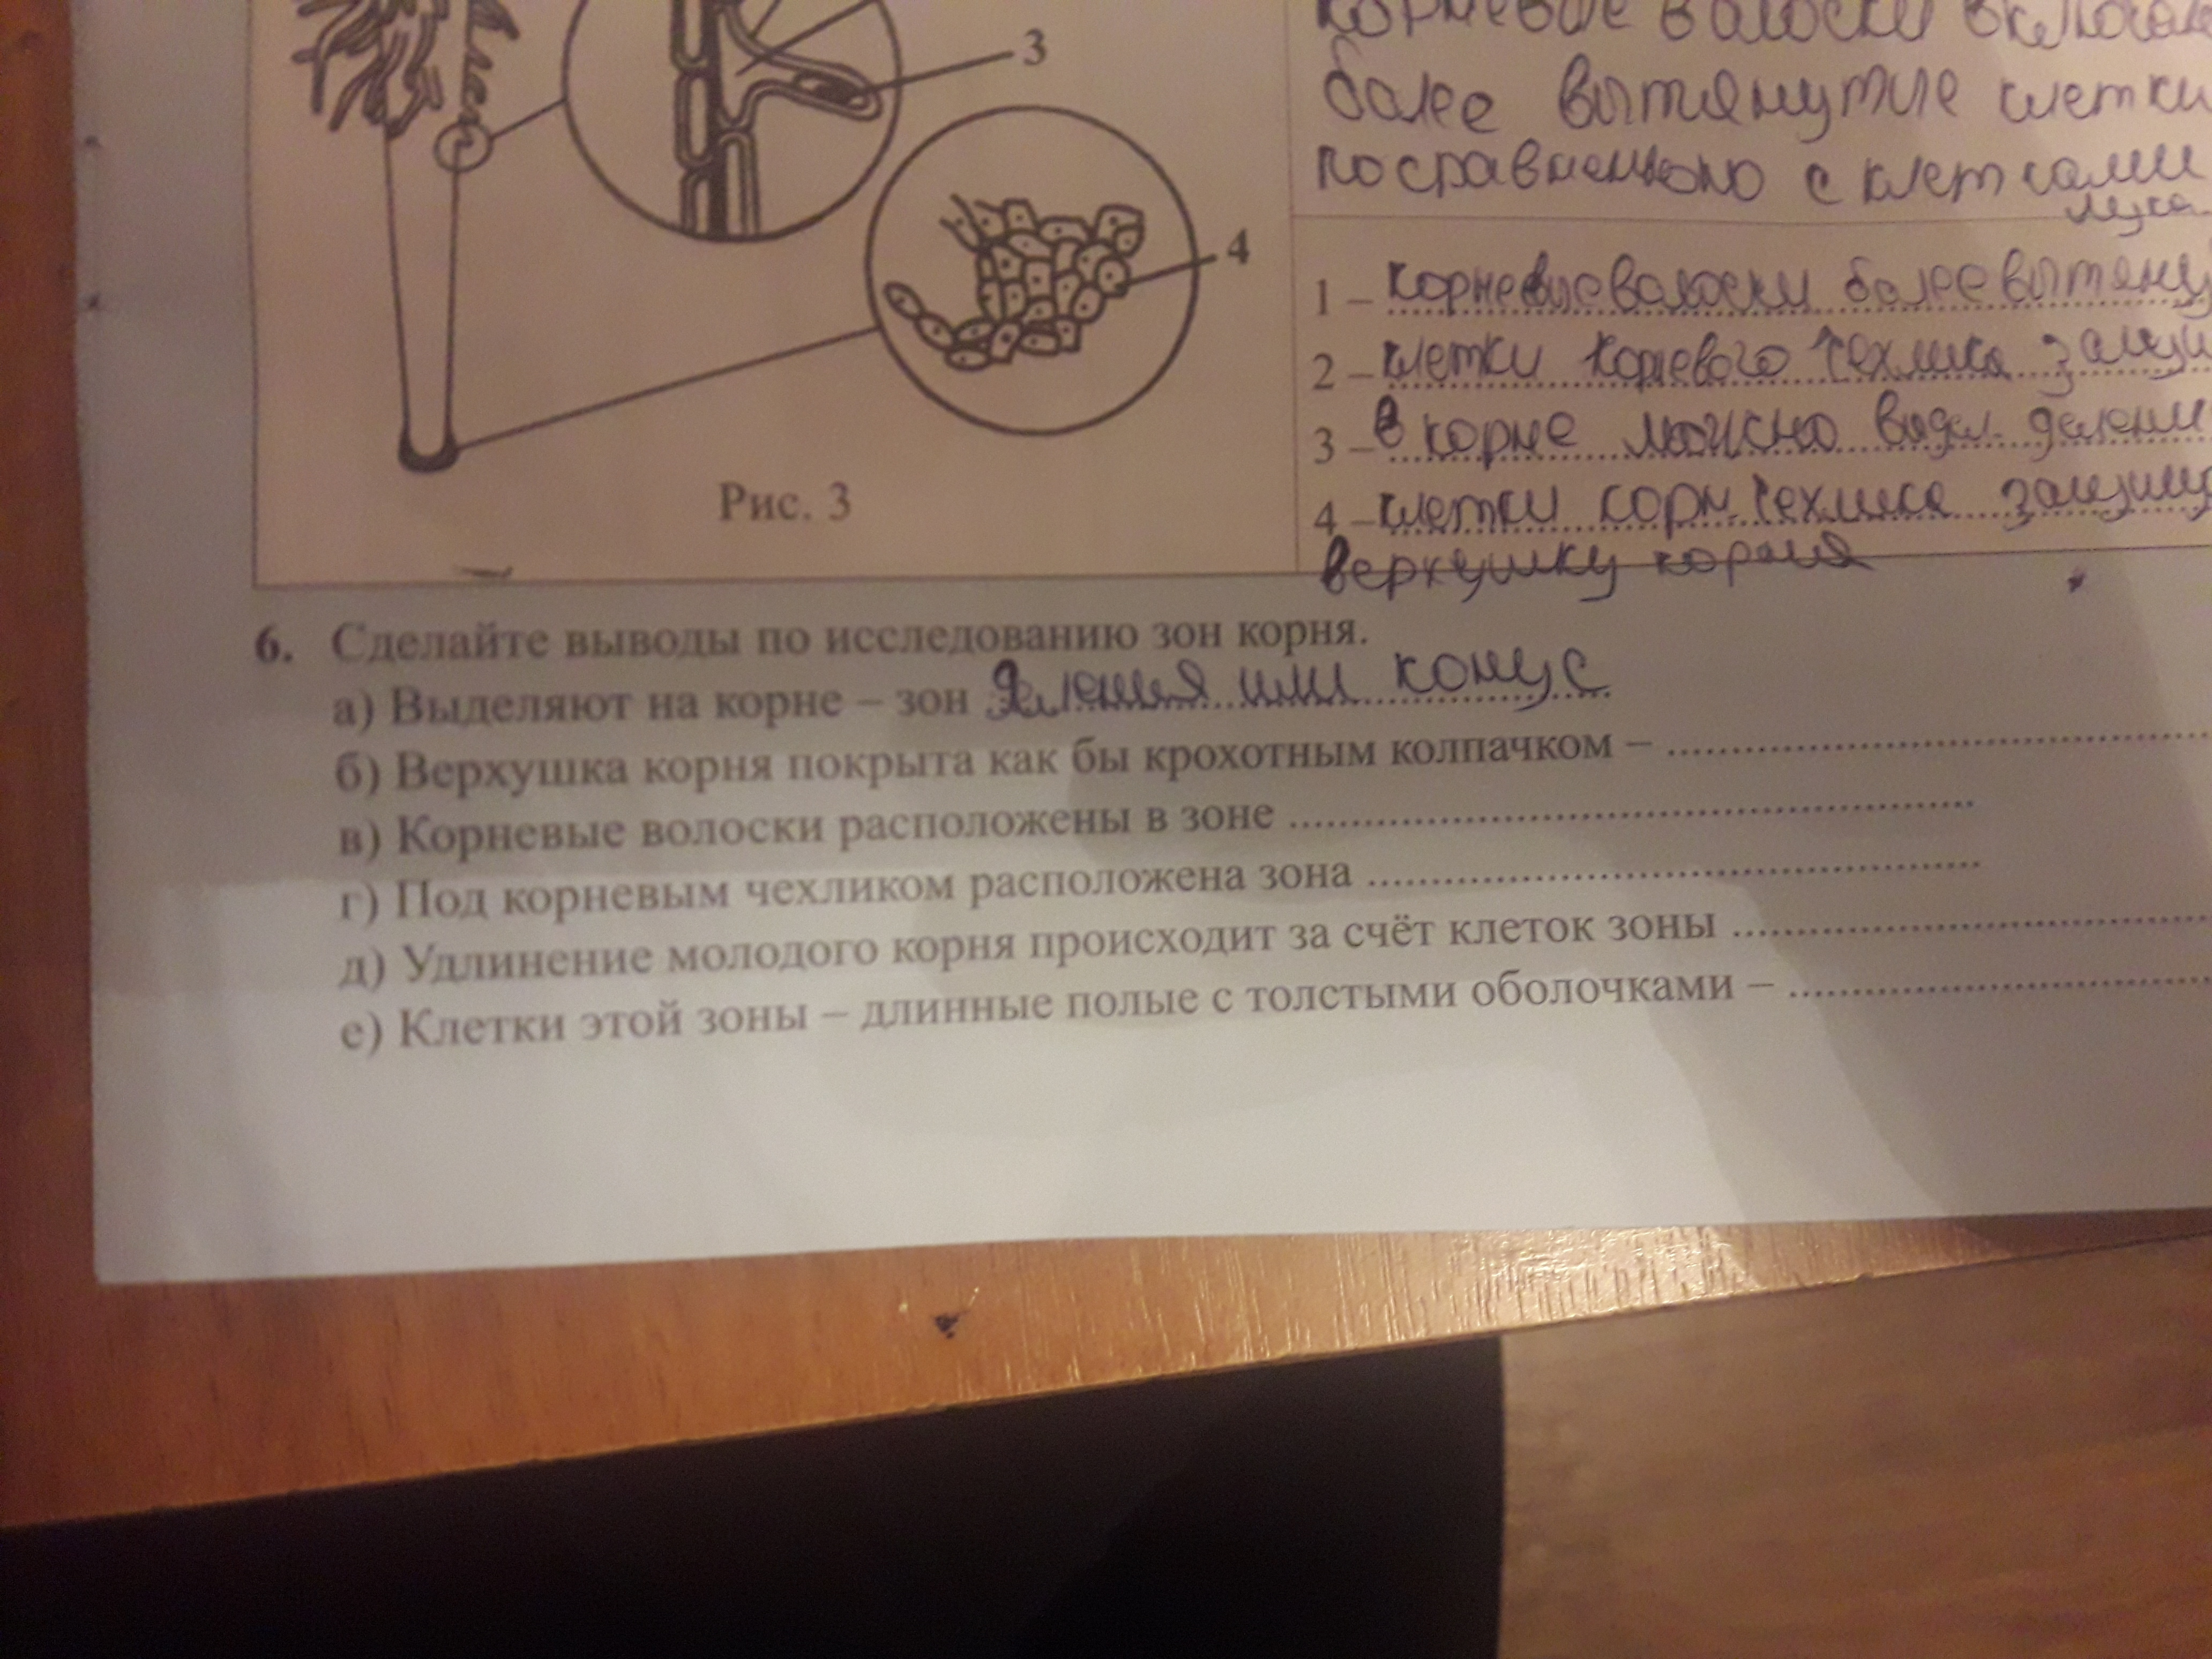 корневые волоски
более вытянутые клетки
по сравнению с клетками
лука
3
4
Рис. 3
1 – корневые волоски более вытяну
2 – клетки корневого чехлика защи
3 – в корне можно видел. делени
4 – клетки корн чехлика защища
верхушку корня
6. Сделайте выводы по исследованию зон корня.
а) Выделяют на корне – зон деления или конус
б) Верхушка корня покрыта как бы крохотным колпачком – ........
в) Корневые волоски расположены в зоне ........
г) Под корневым чехликом расположена зона ........
д) Удлинение молодого корня происходит за счёт клеток зоны ........
е) Клетки этой зоны – длинные полые с толстыми оболочками – ........